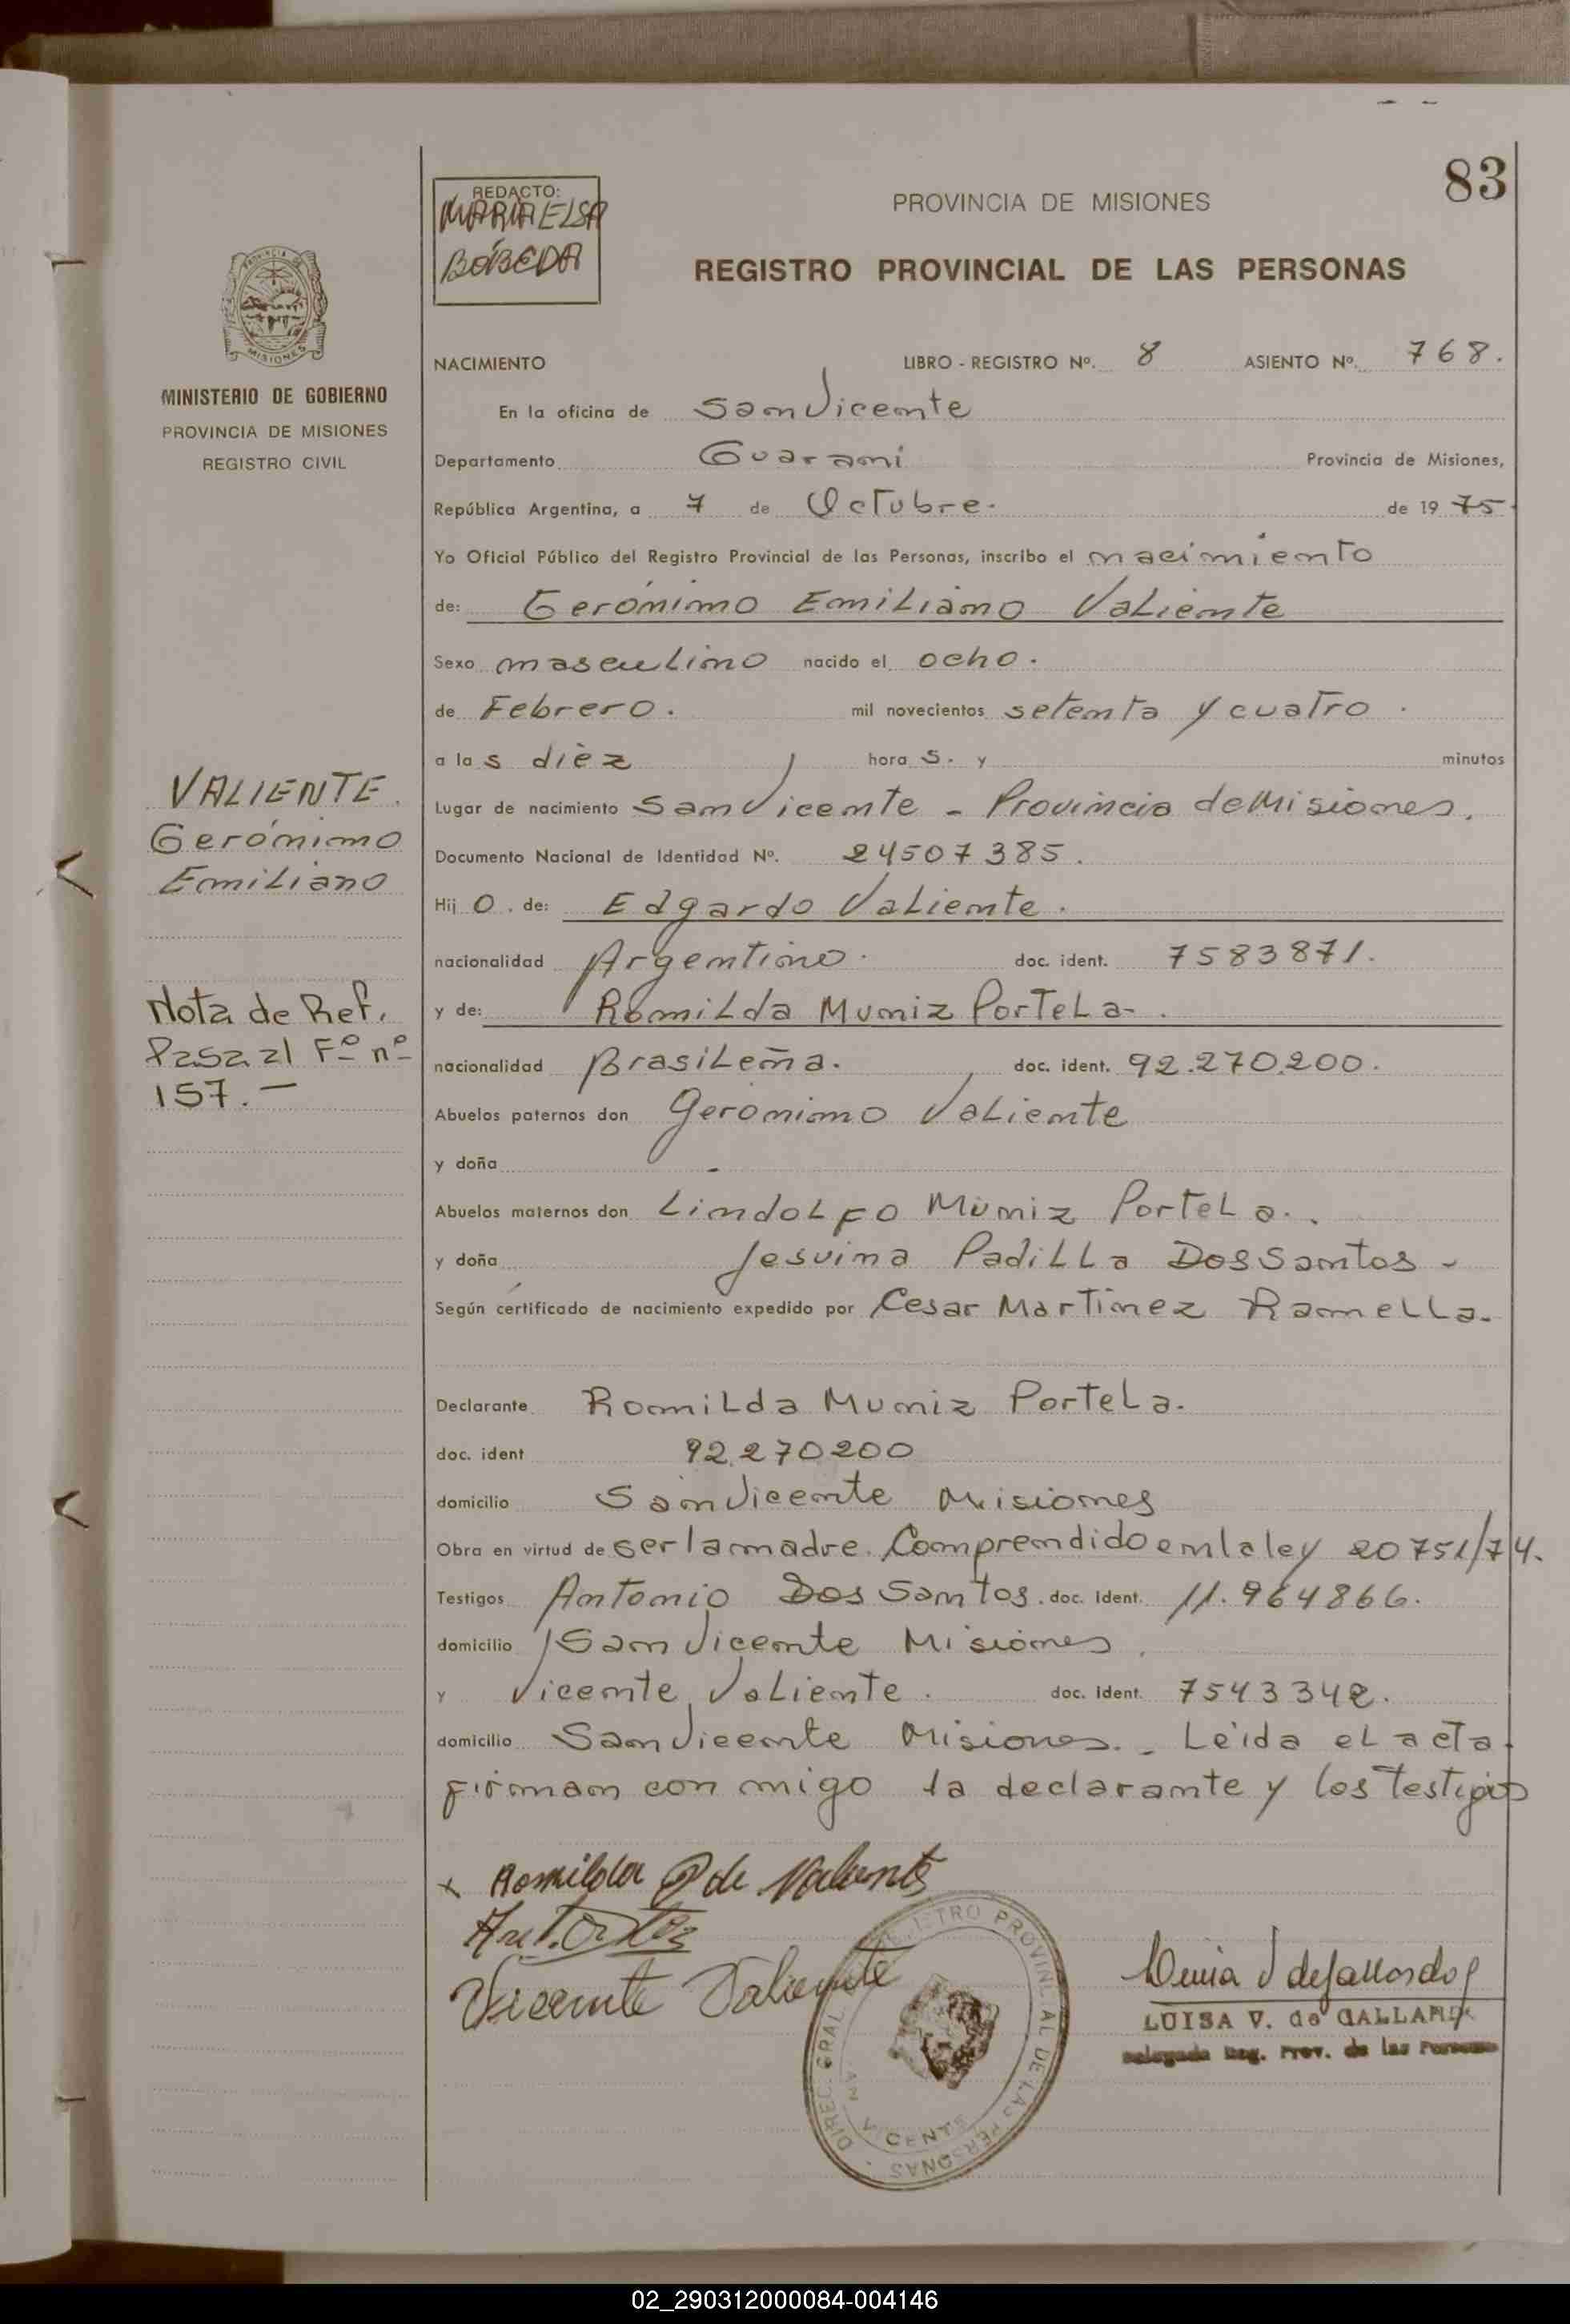 83
REDACTO:
MARIA ELSA
BÓBEDA
PROVINCIA DE MISIONES
REGISTRO PROVINCIAL DE LAS PERSONAS
MISIONES
MINISTERIO DE GOBIERNO
PROVINCIA DE MISIONES
REGISTRO CIVIL
NACIMIENTO LIBRO - REGISTRO Nº. 8 ASIENTO Nº. 768.
En la oficina de San Vicente
Departamento Guarani Provincia de Misiones,
República Argentina, a 7 de Octubre. de 1975
Yo Oficial Público del Registro Provincial de las Personas, inscribo el nacimiento
de: Gerónimo Emiliano Valiente
Sexo masculino nacido el ocho.
de Febrero. mil novecientos setenta y cuatro.
a las diez horas. y minutos
Lugar de nacimiento San Vicente - Provincia de Misiones.
Documento Nacional de Identidad Nº. 24507385.
Hijo. de: Edgardo Valiente.
nacionalidad Argentino. doc. ident. 7583871.
y de: Romilda Muniz Portela.
nacionalidad Brasileña. doc. ident. 92.270.200.
Abuelos paternos don Geronimo Valiente
y doña -
Abuelos maternos don Lindolfo Muniz Portela.
y doña Jesuina Padilla Dos Santos -
Según certificado de nacimiento expedido por Cesar Martinez Ramella.
Declarante Romilda Muniz Portela.
doc. ident 92.270200
domicilio San Vicente Misiones
Obra en virtud de ser la madre. Comprendido en la ley 20751/74.
Testigos Antonio Dos Santos. doc. ident. 11.964866.
domicilio San Vicente Misiones.
y Vicente Valiente. doc. ident. 7543342.
domicilio San Vicente Misiones. - Leida el acta
firman con migo la declarante y los testigos
VALIENTE.
Gerónimo
Emiliano
Nota de Ref.
Pasa al Fº nº
157. -
x Romilda P de Valiente
Vicente Valiente
DIREC. GRAL. REGISTRO PROVINCIAL DE LAS PERSONAS
SAN VICENTE
LUISA V. de GALLARDO
Delegada Reg. Prov. de las Personas
02_290312000084-004146